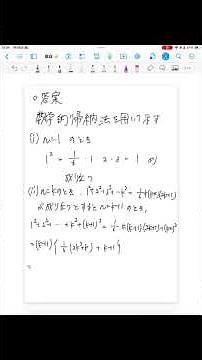 ○答案
数学的帰納法を用いて示す
(i) n=1 のとき
1² = 1/6 · 1 · 2 · 3 = 1 より
成り立つ
(ii) n=k のとき 1²+2²+3²…k² = 1/6 k(k+1)(2k+1)
が成り立つとすると n=k+1 のとき、
1²+2²+ … + k²+(k+1)² = 1/6 · k(k+1)(2k+1)+(k+1)²
= (k+1) { 1/6 (2k²+k) + k+1 }
=